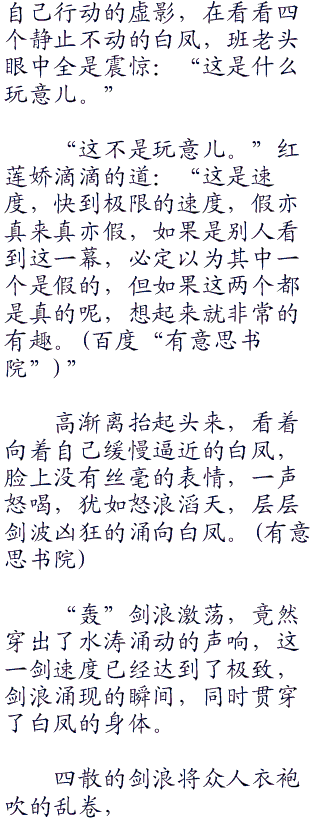 自己行动的虚影，在看看四
个静止不动的白凤，班老头
眼中全是震惊：“这是什么
玩意儿。”
“这不是玩意儿。”红
莲娇滴滴的道：“这是速
度，快到极限的速度，假亦
真来真亦假，如果是别人看
到这一幕，必定以为其中一
个是假的，但如果这两个都
是真的呢，想起来就非常的
有趣。(百度“有意思书
院”)”
高渐离抬起头来，看着
向着自己缓慢逼近的白凤，
脸上没有丝毫的表情，一声
怒喝，犹如怒浪滔天，层层
剑波凶狂的涌向白凤。(有意
思书院)
“轰”剑浪激荡，竟然
穿出了水涛涌动的声响，这
一剑速度已经达到了极致，
剑浪涌现的瞬间，同时贯穿
了白凤的身体。
四散的剑浪将众人衣袍
吹的乱卷，